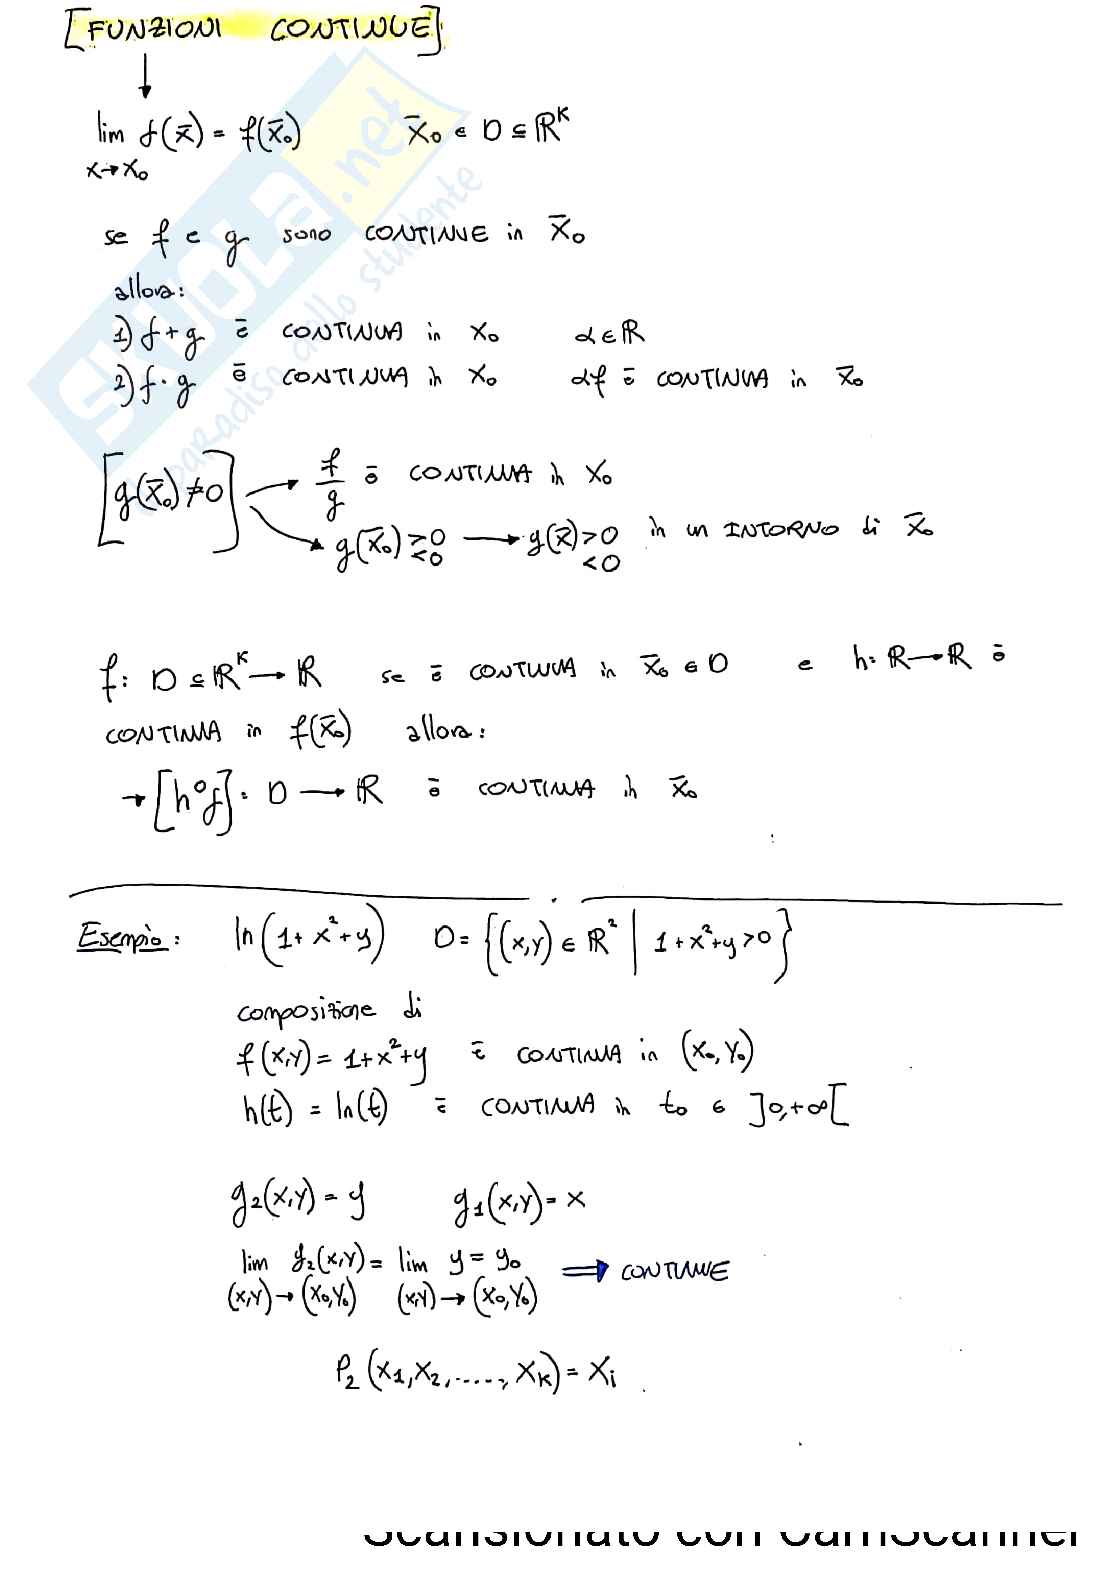 [FUNZIONI CONTINUE]
↓
lim f(x̄) = f(x̄₀)   x̄₀ ∈ D ⊆ ℝᴷ
x→x₀
se f e g sono CONTINUE in x̄₀
allora:
1) f + g è CONTINUA in x₀   α ∈ ℝ
2) f · g è CONTINUA in x₀   αf è CONTINUA in x̄₀
[g(x̄₀) ≠ 0] → f/g è CONTINUA in x₀
→ g(x̄₀) >0 <0 → g(x̄) >0 <0 in un INTORNO di x̄₀
f: D ⊆ ℝᴷ → ℝ se è CONTINUA in x̄₀ ∈ D e h: ℝ → ℝ è
CONTINUA in f(x̄₀) allora:
→ [h∘f]: D → ℝ è CONTINUA in x̄₀
Esempio: ln(1 + x² + y)   D = {(x,y) ∈ ℝ² | 1 + x² + y > 0}
composizione di
f(x,y) = 1 + x² + y è CONTINUA in (x₀, y₀)
h(t) = ln(t) è CONTINUA in t₀ ∈ ]0, +∞[
g₂(x,y) = y   g₁(x,y) = x
lim g₂(x,y) = lim y = y₀ ⟹ CONTINUE
(x,y) → (x₀,y₀)   (x,y) → (x₀,y₀)
P₂(x₁, x₂, ....., xₖ) = xᵢ
SKUOLA.net
il paradiso dello studente
Scansionato con CamScanner